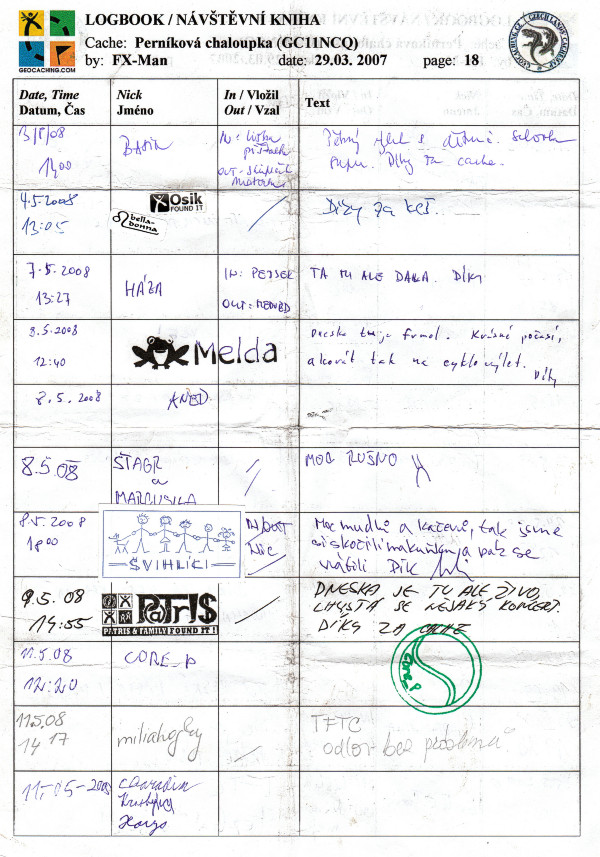 LOGBOOK / NÁVŠTĚVNÍ KNIHA
Cache: Perníková chaloupka (GC11NCQ)
by: FX-Man date: 29.03. 2007 page: 18
GEOCACHING.COM
Date, Time Nick In / Vložil Text
Datum, Čas Jméno Out / Vzal
3/5/08
14,00
IN:
OUT -
cache.
4.5.2008
13:05
Osik
FOUND IT
bella-donna
Díky za keš.
7.5.2008
13:27
HÁZA
IN: PEJSEK
OUT: MEDVĚD
TA MU ALE DALA. DÍKY
8.5.2008
12:40
Melda
Krásné počasí,
akorát tak na cyklovýlet.
Díky
8.5.2008
8.5.08
ŠTAGR
a
MARCUSKA
MOC RUŠNO
8.5.2008
18 00
ŠVIHLÍCI
IN/OUT
NIC
Moc mudlů a kačerů, tak jsme
si skočili na kuňku a pak se
vrátili Dík
9.5.08
14:55
PATR!S
PATRIS & FAMILY FOUND IT !
DNESKA JE TU ALE ŽIVO,
CHYSTÁ SE NĚJAKÝ KONCERT.
DÍKY ZA CACHE
11.5.08
12:20
CORE_P
11.5.08
14 17
miliahojky
TFTC
odlov bez problémů
11.-05-2008